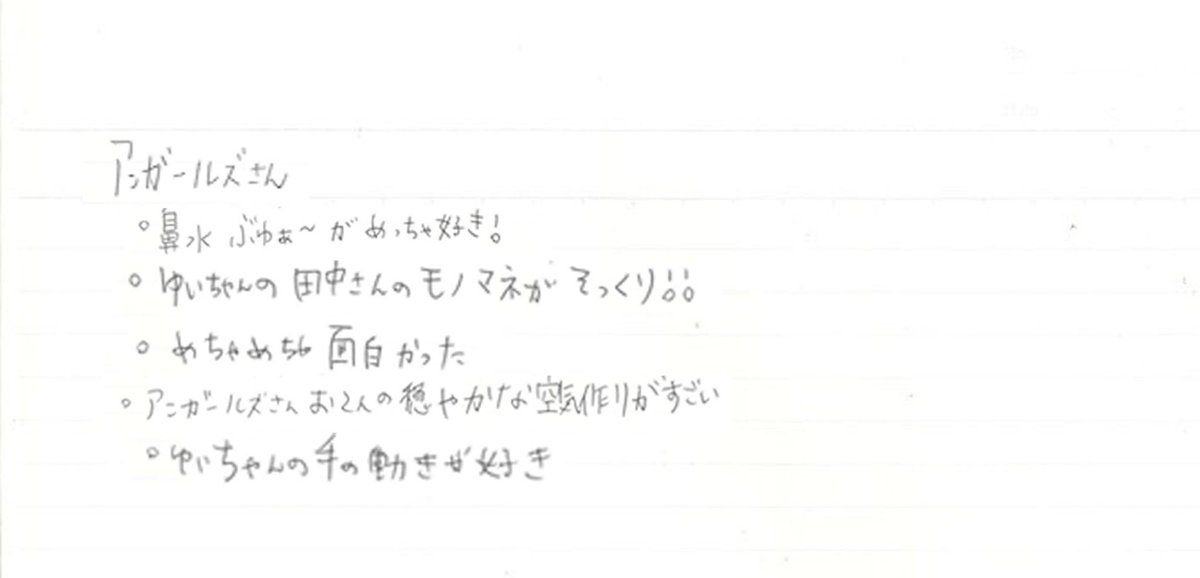 アンガールズさん
。鼻水 ぶゅぁ〜 が めっちゃ好き!
。ゆいちゃんの 田中さんのモノマネが そっくり!!
。めちゃめちゃ 面白かった
。アンガールズさん お2人の 穏やかな空気作りがすごい
。ゆいちゃんの手の動きが好き